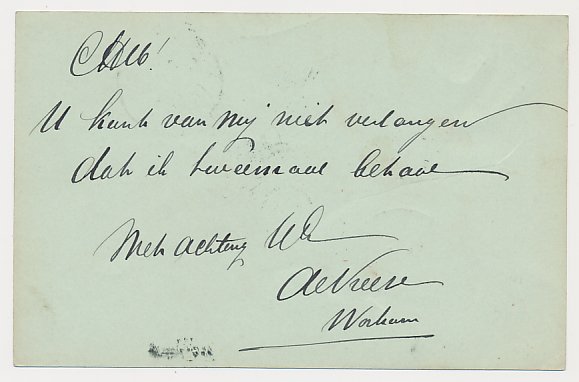 U kunt van mij niet verlangen
dat ik tweemaal betaal
Met achting
de Vreese
Workum